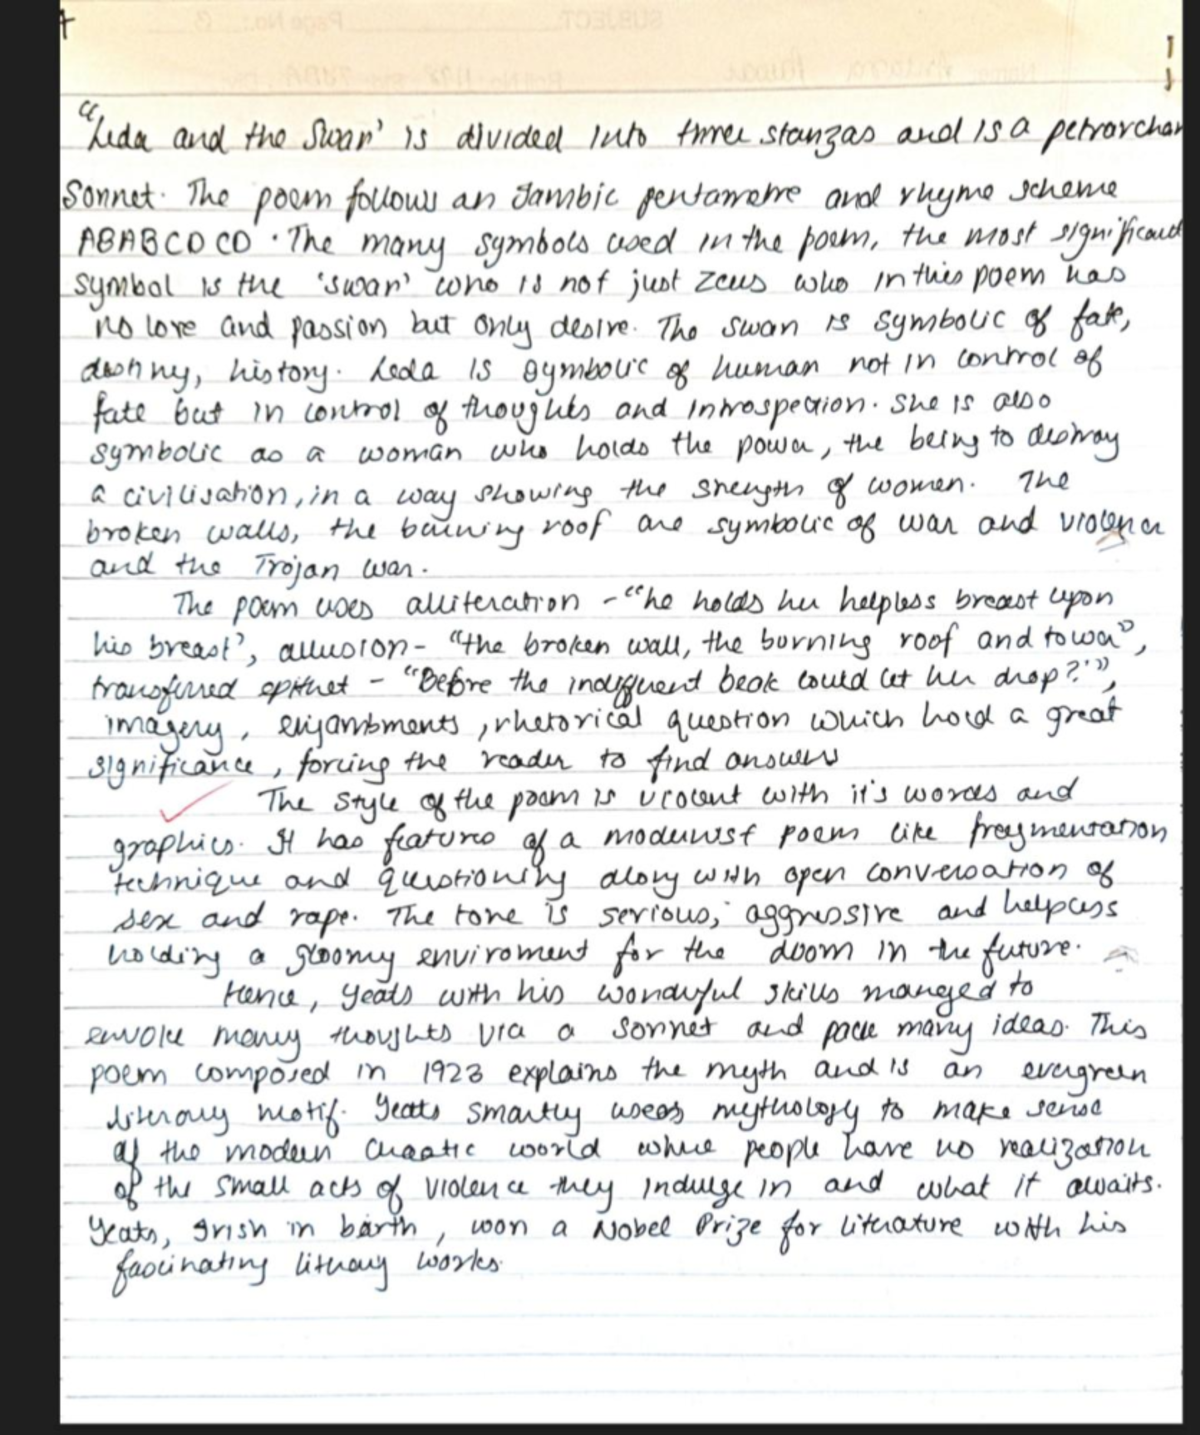 SUBJECT Page No: 3
"Leda and the Swan' is divided into three stanzas and is a petrarchan
Sonnet. The poem follows an Iambic pentametre and rhyme scheme
ABABCDCD. The many symbols used in the poem, the most significant
symbol is the 'swan' who is not just Zeus who in this poem has
no love and passion but only desire. The swan is symbolic of fate,
destiny, history. Leda is symbolic of human not in control of
fate but in control of thoughts and introspection. She is also
symbolic as a woman who holds the power, the being to destroy
a civilisation, in a way showing the strength of women. The
broken walls, the burning roof are symbolic of war and violence
and the Trojan war.
The poem uses alliteration - "he holds her helpless breast upon
his breast', allusion - "the broken wall, the burning roof and tower",
transferred epithet - "Before the indifferent beak could let her drop?'",
imagery, enjambments, rhetorical question which hold a great
significance, forcing the reader to find answers
The style of the poem is violent with it's words and
graphics. It has features of a modernist poem like fragmentation
technique and questioning along with open conversation of
sex and rape. The tone is serious, aggressive and helpless
holding a gloomy enviroment for the doom in the future.
Hence, Yeats with his wonderful skills manged to
envoke many thoughts via a sonnet and pack many ideas. This
poem composed in 1923 explains the myth and is an evergreen
literary motif. Yeats smartly uses mythology to make sense
of the modern chaotic world where people have no realization
of the small acts of violence they indulge in and what it awaits.
Yeats, Irish in birth, won a Nobel Prize for literature with his
fascinating literary works.